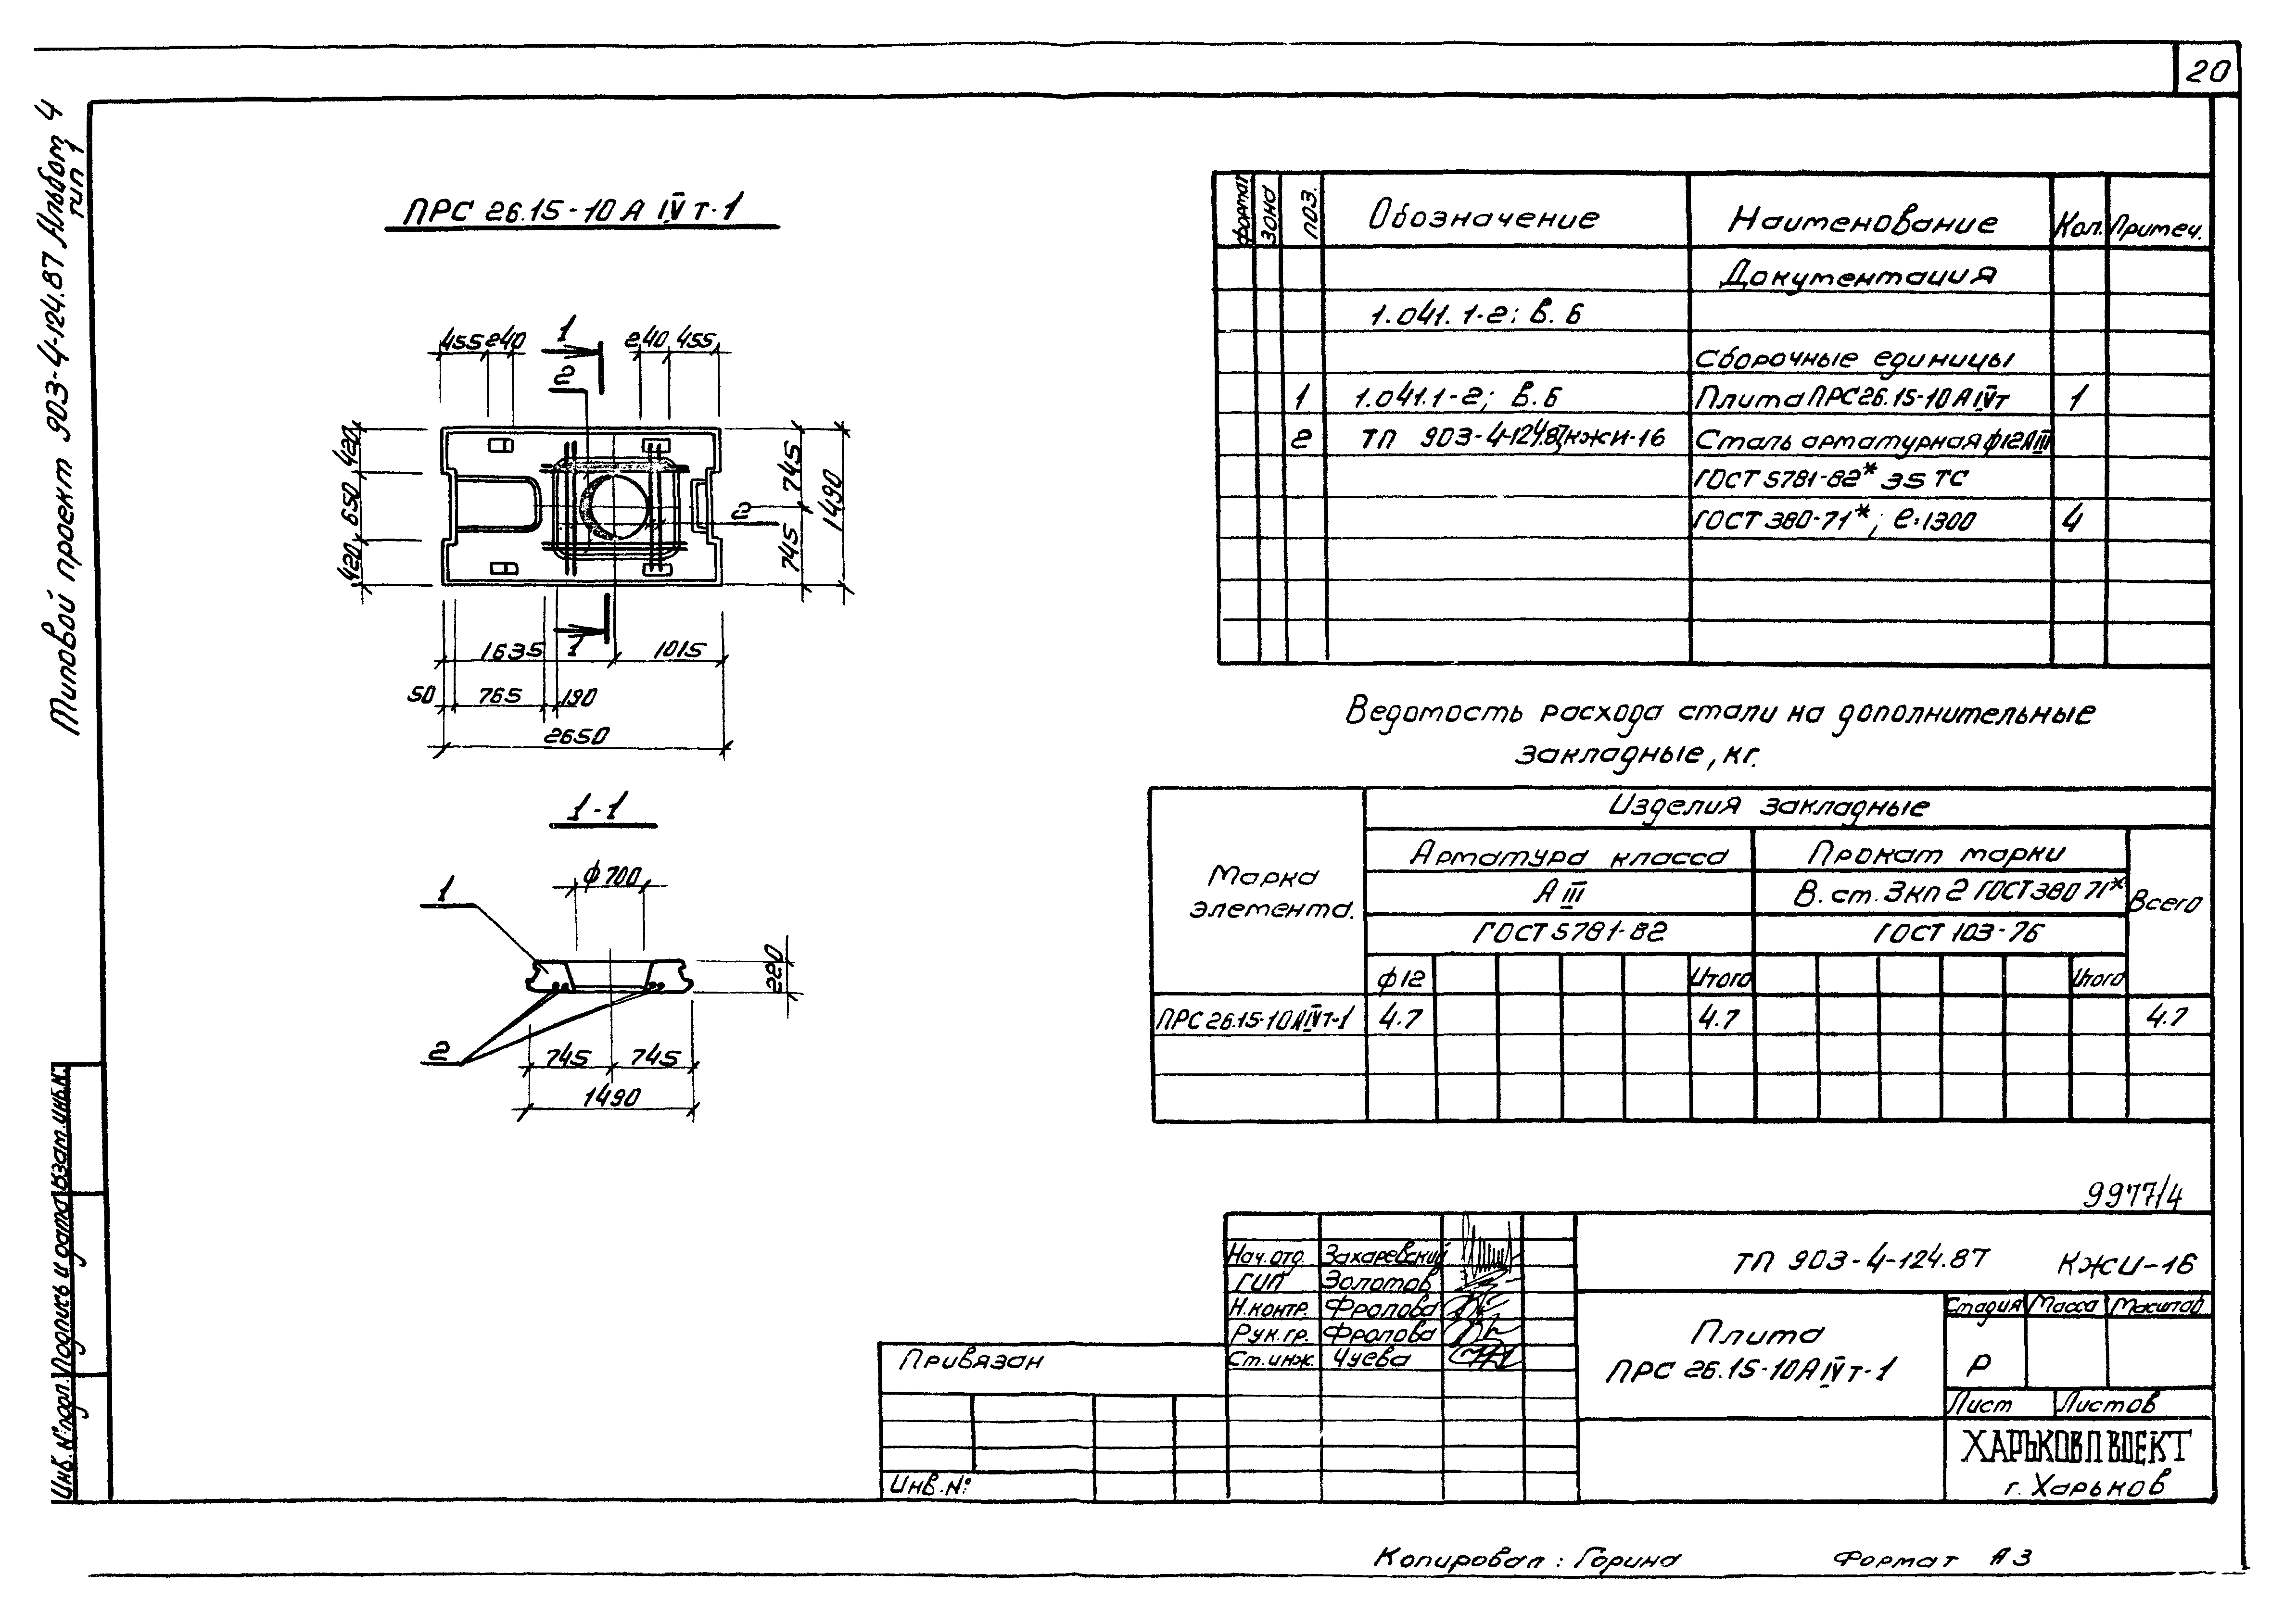 20
Типовой проект 903-4-124.87 Альбом 4
тип 1
ПРС 26.15-10 А IV т-1
455 240
1
240 455
2
420
650
420
745
745
1490
2
1
1635
1015
50
765
190
2650
1-1
ф 700
1
220
2
745
745
1490
формат
зона
поз.
Обозначение
Наименование
Кол.
Примеч.
Документация
1.041.1-2; в. 6
Сборочные единицы
1 1.041.1-2; в. 6 Плита ПРС 26.15-10 А IV т 1
2 ТП 903-4-124.87; КЖИ-16 Сталь арматурная ф12 А III
ГОСТ 5781-82* 35 ТС
ГОСТ 380-71*; ℓ=1300 4
Ведомость расхода стали на дополнительные
закладные, кг.
Марка
элемента.
Изделия закладные
Арматура класса
Прокат марки
Всего
А III
В. ст. 3кп 2 ГОСТ 380 71*
ГОСТ 5781-82
ГОСТ 103-76
ф12
Итого
Итого
ПРС 26.15-10 А IV т-1 4.7 4.7 4.7
9977/4
Нач. отд. Захаревский
ГИП Золотов
Н.контр. Фролова
Рук. гр. Фролова
Ст. инж. Чуева
ТП 903-4-124.87 КЖИ-16
Плита
ПРС 26.15-10 А IV т-1
Стадия Масса Масштаб
Р
Лист Листов
ХАРЬКОВП ВОЕКТ
г. Харьков
Привязан
Инв. №
Взам. инв. №
Подпись и дата
Инв. № подл.
Копировал: Горина
Формат А3